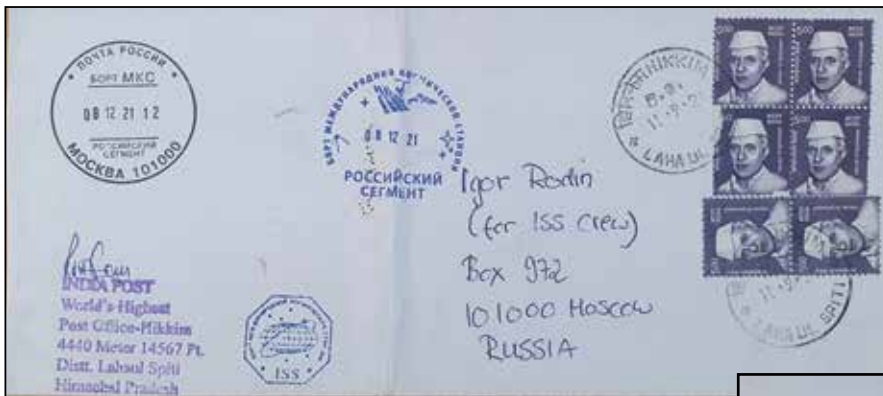 ПОЧТА РОССИИ
БОРТ МКС
08 12 21 12
РОССИЙСКИЙ
СЕГМЕНТ
МОСКВА 101000
БОРТ МЕЖДУНАРОДНОЙ КОСМИЧЕСКОЙ СТАНЦИИ
08 12 21
РОССИЙСКИЙ
СЕГМЕНТ
HIKKIM
LAHAUL
5.00
5.00
Igor Rodin
(for ISS Crew)
Box 972
101000 Moscow
RUSSIA
INDIA POST
World's Highest
Post Office-Hikkim
4440 Meter 14567 Ft.
Distt. Lahaul Spiti
Himachal Pradesh
ISS
LAHAUL SPITI